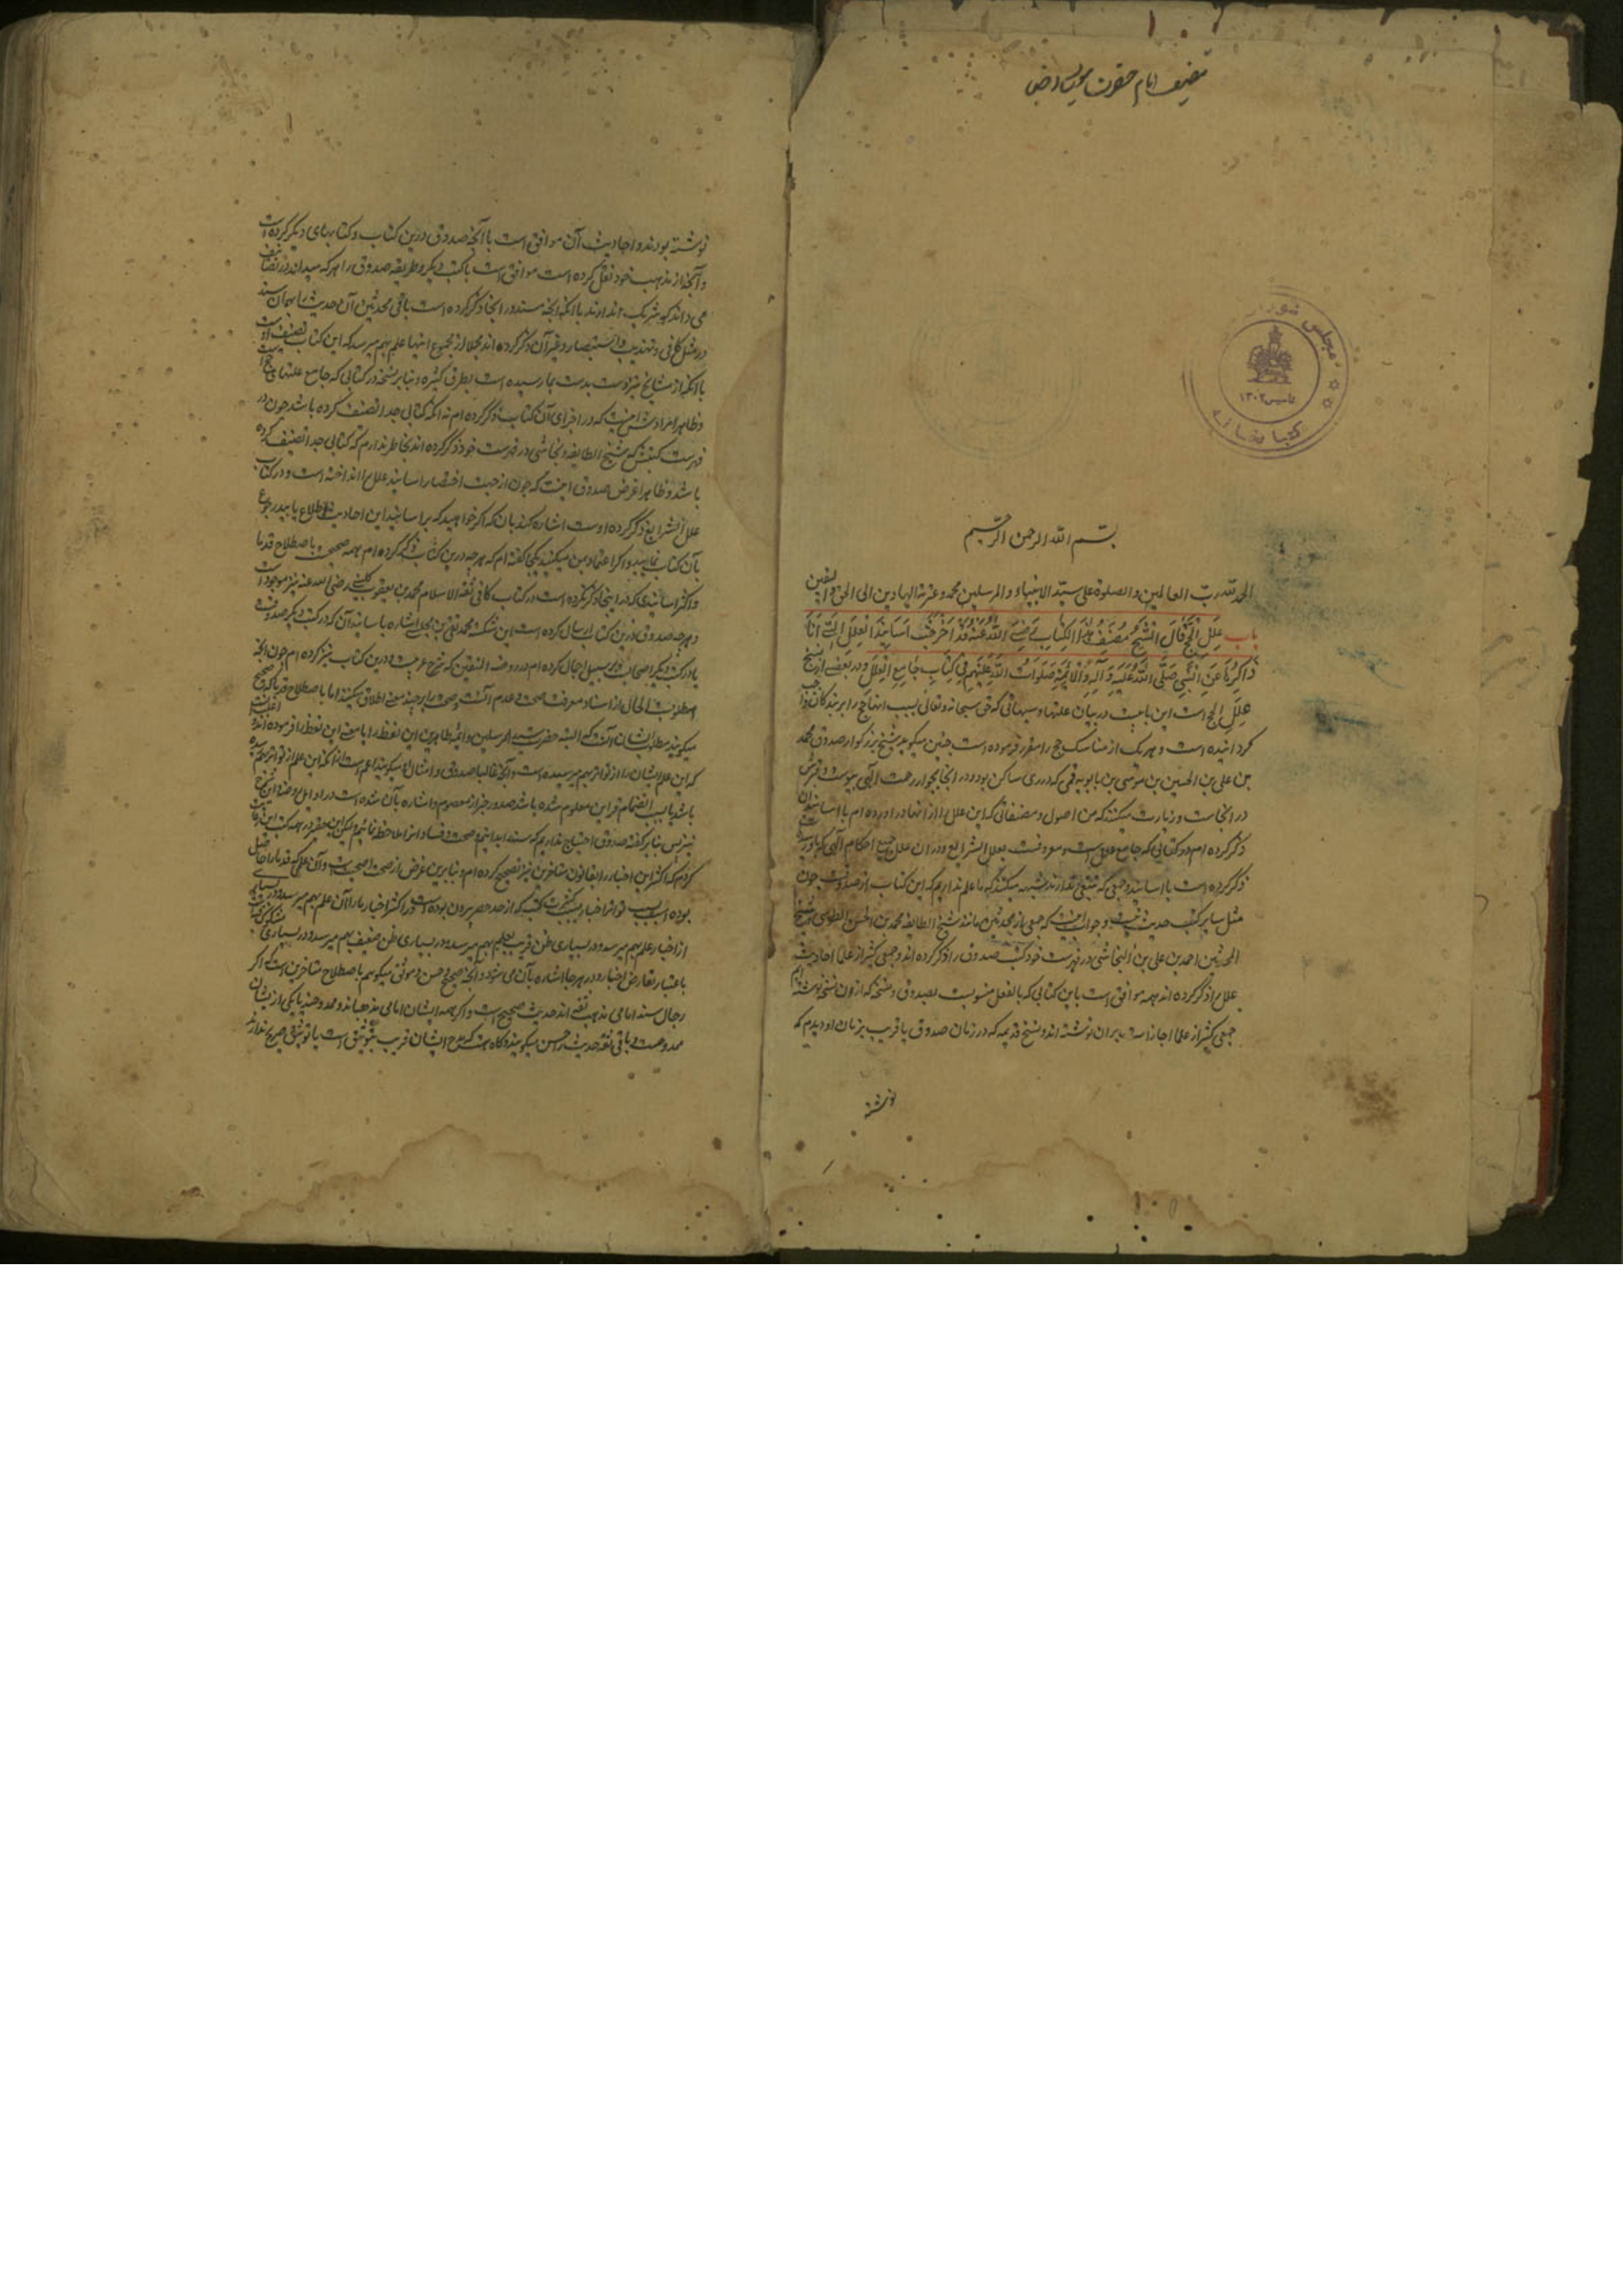 تصنیف امام حضرت
مجلس شورای
تاسیس ۱۳۰۲
کتابخانه
بسم الله الرحمن الرحیم
الحمد لله رب العالمین و الصلوة علی سید الانبیاء و المرسلین محمد و عترته الهادین الی الحق و الیقین
باب عِلَلِ الْحَجِّ قَالَ الشَّیْخُ مُصَنِّفُ هٰذَا الْکِتَابِ رَضِیَ اللّٰهُ عَنْهُ قَدْ اَخْرَجْتُ اَسَانِیْدَ الْعِلَلِ الَّتِیْ اَنَا
ذَاکِرُهَا عَنِ النَّبِیِّ صَلَّی اللّٰهُ عَلَیْهِ وَ آلِهِ وَ الْاَئِمَّةِ صَلَوَاتُ اللّٰهِ عَلَیْهِمْ فِیْ کِتَابِ جَامِعِ الْعِلَلِ و در بعضی از نسخ
علل الحج است این بابیست در بیان علتها و سببهائی که حق سبحانه و تعالی بسبب انها حج را بر بندکان واجب
کردانیده است و هر یک از مناسک حج را مقرر فرموده است چنین میکوید شیخ بزرکوار صدوق محمد
بن علی بن الحسین بن موسی بن بابویه قمی که در ری ساکن بود و در انجا بجوار رحمت الهی پیوست و قبرش
در انجاست و زیارت میکنند که من اصول و مصنفاتی که این علل را از انها در اورده ام با اسانید آن
ذکر کرده ام در کتابی که جامع علل است و معروفست بعلل الشرایع و در ان علل جمیع احکام الهی که باو رسیده
ذکر کرده است با اسانید و جمعی که تتبعی ندارند شبهه میکنند که ما علم نداریم که این کتاب از صدوقست چون
مثل سایر کتب حدیث نیست و جواب انست که جمعی از محدثین مانند شیخ الطایفه محمد بن الحسن الطوسی و شیخ
المحدثین احمد بن علی بن النجاشی در فهرست خود کتب صدوق را ذکر کرده اند و جمعی کثیر از علما احادیث
علل را ذکر کرده اند همه موافق است باین کتابی که بالفعل منسوبست بصدوق و نسخه که از ون نسخه نوشته ایم
جمعی کثیر از علما اجازات بر ان نوشته اند و نسخ قدیمه که در زمان صدوق یا قریب بزمان او دیدم که
نوشته
نوشته بودند و احادیث آن موافق است با آنچه صدوق درین کتاب و کتابهای دیکر کرده است
و آنچه از مذهب خود نقل کرده است موافق است با کتب دیکر و طریقه صدوق را هر که میداند در تصانیف
می داند که شریک ندارند با انکه انچه مسند در انجا ذکر کرده است باقی محدثین آن حدیث را بهمان سند
در مثل کافی و تهذیب و استبصار و غیر آن ذکر کرده اند مجملا از مجموع اینها علم بهم میرسد که این کتاب تصنیف اوست
با انکه از مشایخ نیز دست بدست بما رسیده است بطرق کثیره و بنا بر نسخه در کتابی که جامع علتهای حج است
و ظاهرا مرادش اینست که در اجزای آن کتاب ذکر کرده ام نه انکه کتابی جدا تصنیف کرده باشد چون در
فهرست کتبش که شیخ الطایفه و نجاشی در فهرست خود ذکر کرده اند بخاطر ندارم که کتابی جدا تصنیف کرده
باشد و ظاهرا غرض صدوق اینست که چون از جهت اختصار اسانید علل را انداخته است و در کتاب
علل الشرایع ذکر کرده اوست اشاره کند بان که اکر خواهید که بر اسانید این احادیث اطلاع یابید رجوع
بآن کتاب نمایید و اکر اعتماد بمن میکنید کفته ام که هر چه درین کتاب ذکر کرده ام همه صحیحست باصطلاح قدما
و اکثر اسانیدی که در اینجا ذکر نکرده است در کتاب کافی ثقة الاسلام محمد بن یعقوب کلینی رضی الله عنه نیز موجود است
و هر چه صدوق درین کتاب ارسال کرده است این شکسته محمد تقی بن مجلسی اشاره باسانید آن که در کتب دیکر صدوقست
یا در کتب دیکر اصحاب بر سبیل اجمال کرده ام در روضة المتقین که شرح عربیست و درین کتاب نیز کرده ام چون انچه
مطلوبست الحال از اسناد معرفت صحت و عدم آنست و صحت را بر چند معنی اطلاق میکنند اما باصطلاح قدما که صحیح
میکویند مطلوب ایشان آنست که البته حضرت سید المرسلین و ائمه طاهرین این لفظ را یا معنی این لفظ را فرموده اند
که این علم ایشان را از تواتر بهم میرسیده است و آنچه غالبا صدوق و امثال او میکویند اعم است از انکه این علم از تواتر بهم رسیده
باشد یا بسبب انضمام قراین معلوم شده باشد صدور خبر از معصوم و اشاره بآن شده است در اوایل
نیز پس بنا بر کفته صدوق احتیاج نداریم که سند را بدانیم و صحت و فساد انرا ملاحظه نمائیم
کردم که اکثر این اخبار را بقانون متاخرین نیز تصحیح کرده ام و بنا برین غرض از صحت
بوده است بسبب تواتر اخبار بسبب کثرت کتب که از حد حصر بیرون بوده است و در اکثر اخبار ما را آن علم بهم میرسد و در بسیاری
از اخبار علم بهم میرسد و در بسیاری ظن قریب بعلم بهم میرسد و در بسیاری ظن ضعیف بهم میرسد و در بسیاری
باعتبار تعارض اخبار و در هر جا اشاره بآن می شود و انچه صحیح و حسن و موثق میکویم باصطلاح متاخرین است که اکر
رجال سند امامی مذهب ثقه اند حدیث صحیح است و اکر همه ایشان امامی مذهبند و ممدوحند یا یکی از ایشان
ممدوحست و باقی ثقه حدیث را حسن میکویند و کاه هست که مدح ایشان قریب بتوثیق است یا توثیق صریح ندارند